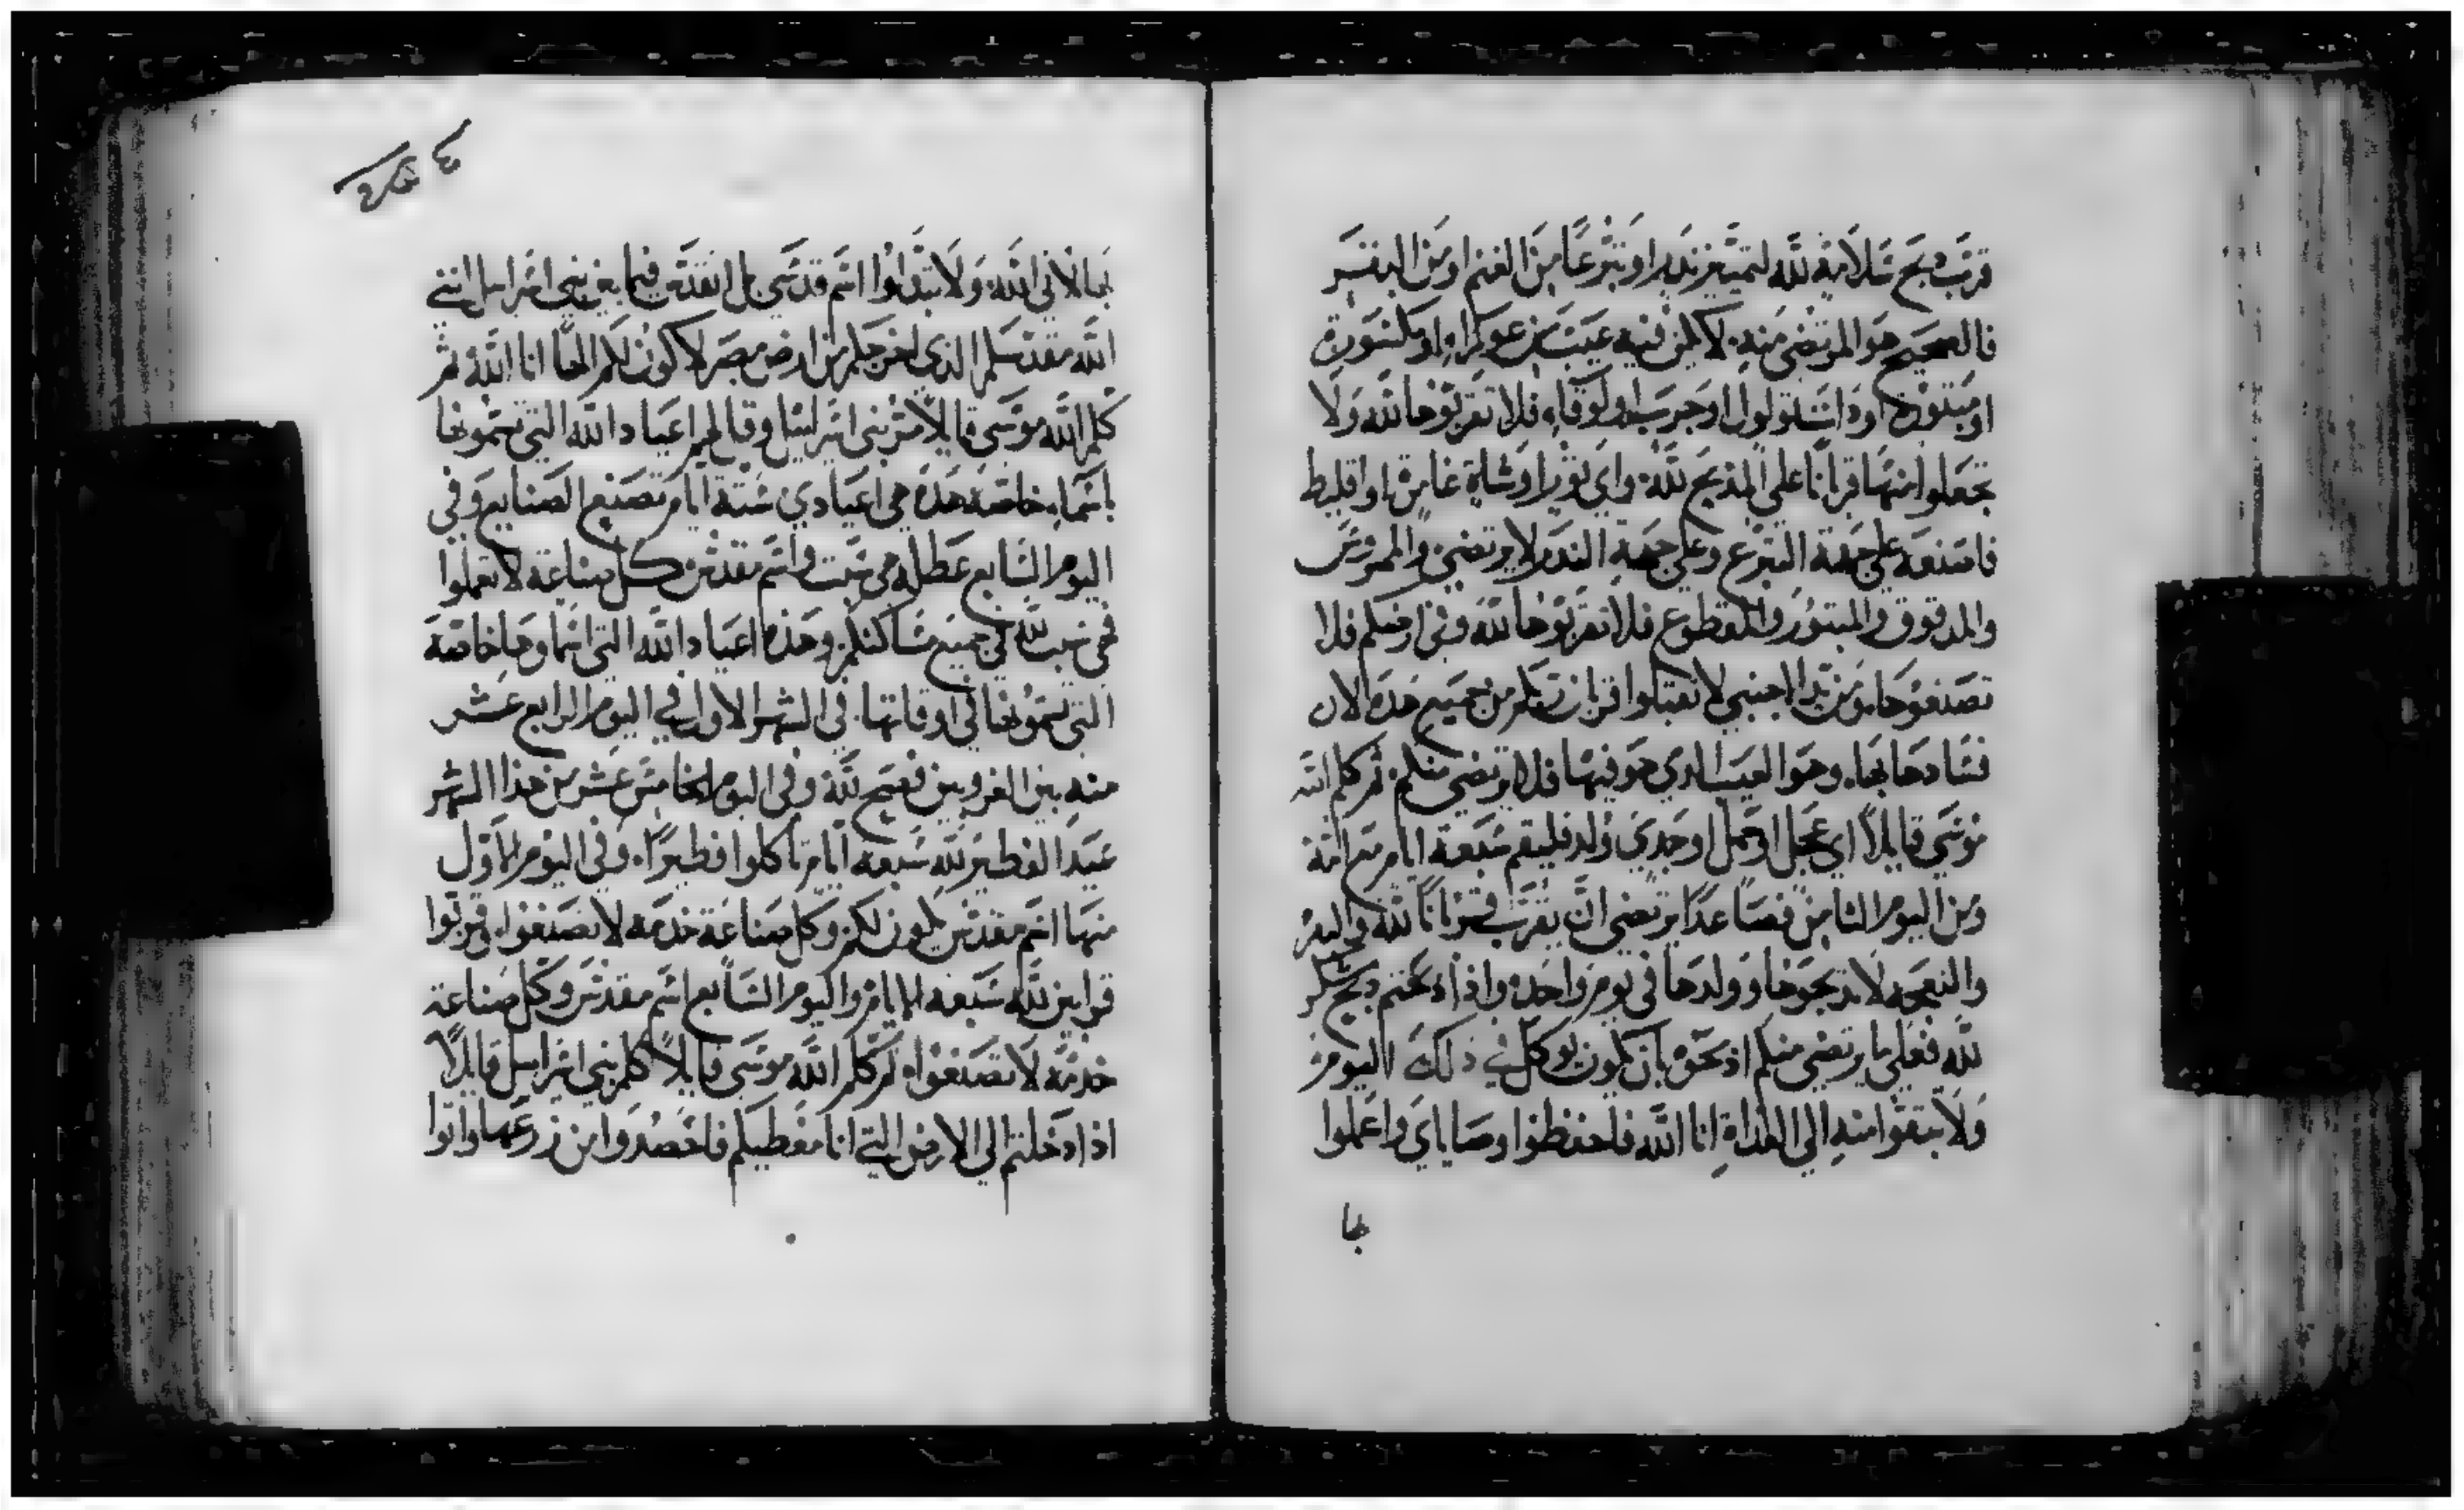 قرب ذبح سلامة لله لتمييز نذر او تبرعا من الغنم او من البقر
فالصحيح هو المرتضى منه لا يكن فيه عيب من عور كراو مكسورة
او مبتورة او ذا ثولول او جرب او لوقاء فلا تقربوها لله ولا
تجعلوا منها قربانا على المذبح لله واي ثور او شاة غامز او اقليط
فاصنعه على جهة التبرع وعلى جهة الندر لا يرتضى والممروس
والمدقوق والمبتور والمقطوع فلا تقربوها لله وفي ارضكم فلا
تصنعوها ومن يد الاجنبي لا تقبلوا قربان ربكم من جميع هذه لان
فسادها بها وهو العيب الدي هو فيها فلا يرتضى منكم ثم كلم الله
موسى قايلا اي عجل او حمل او جدي ولد فليقم سبعة ايام مع امه
ومن اليوم الثامن فصاعدا يرتضى ان يقرب قربانا لله والبقر
والنعجه لا تذبحوها وولدها في يوم واحد واذا ذبحتم ذبح شكر
لله فعلى ما يرتضى منكم اذبحوه بان يكون يوكل في ذلك اليوم
ولا تبقوا منه الى الغداة انا الله فاحفظوا وصاياي واعملوا
بها
بها لاني الله ولا تبدلوا اسم قدسي بل اتقدس فيما بين بني اسراييل انني
الله مقدسكم الذي اخرجكم من ارض مصر لاكون لكم الها انا الله ثم
كلم الله موسى قايلا مر بني اسراييل وقال لهم اعياد الله التي تسمونها
باسماء خاصة هذه هي اعيادي ستة ايام تصنع الصنايع وفي
اليوم السابع عطلة هي سبت واسم مقدس كل صناعة لا تعملوا
فهي سبت لله في جميع مساكنكم وهذه اعياد الله التي اسماوها خاصة
التي تسمونها في اوقاتها في الشهر الاول في اليوم الرابع عشر
منه بين الغروبين فصح لله وفي اليوم الخامس عشر من هذا الشهر
عيد الفطير لله سبعه ايام تاكلوا فطيرا وفي اليوم الاول
منها اسم مقدس يكون لكم وكل صناعة خدمه لا تصنعوا وقربوا
قرابين لله سبعه الايام واليوم السابع اسم مقدس وكل صناعة
خدمه لا تصنعوا ثم كلم الله موسى قايلا كلم بني اسراييل قايلا
اذا دخلتم الى الارض التي انا معطيكم فاحصدوا من زرعها واتوا